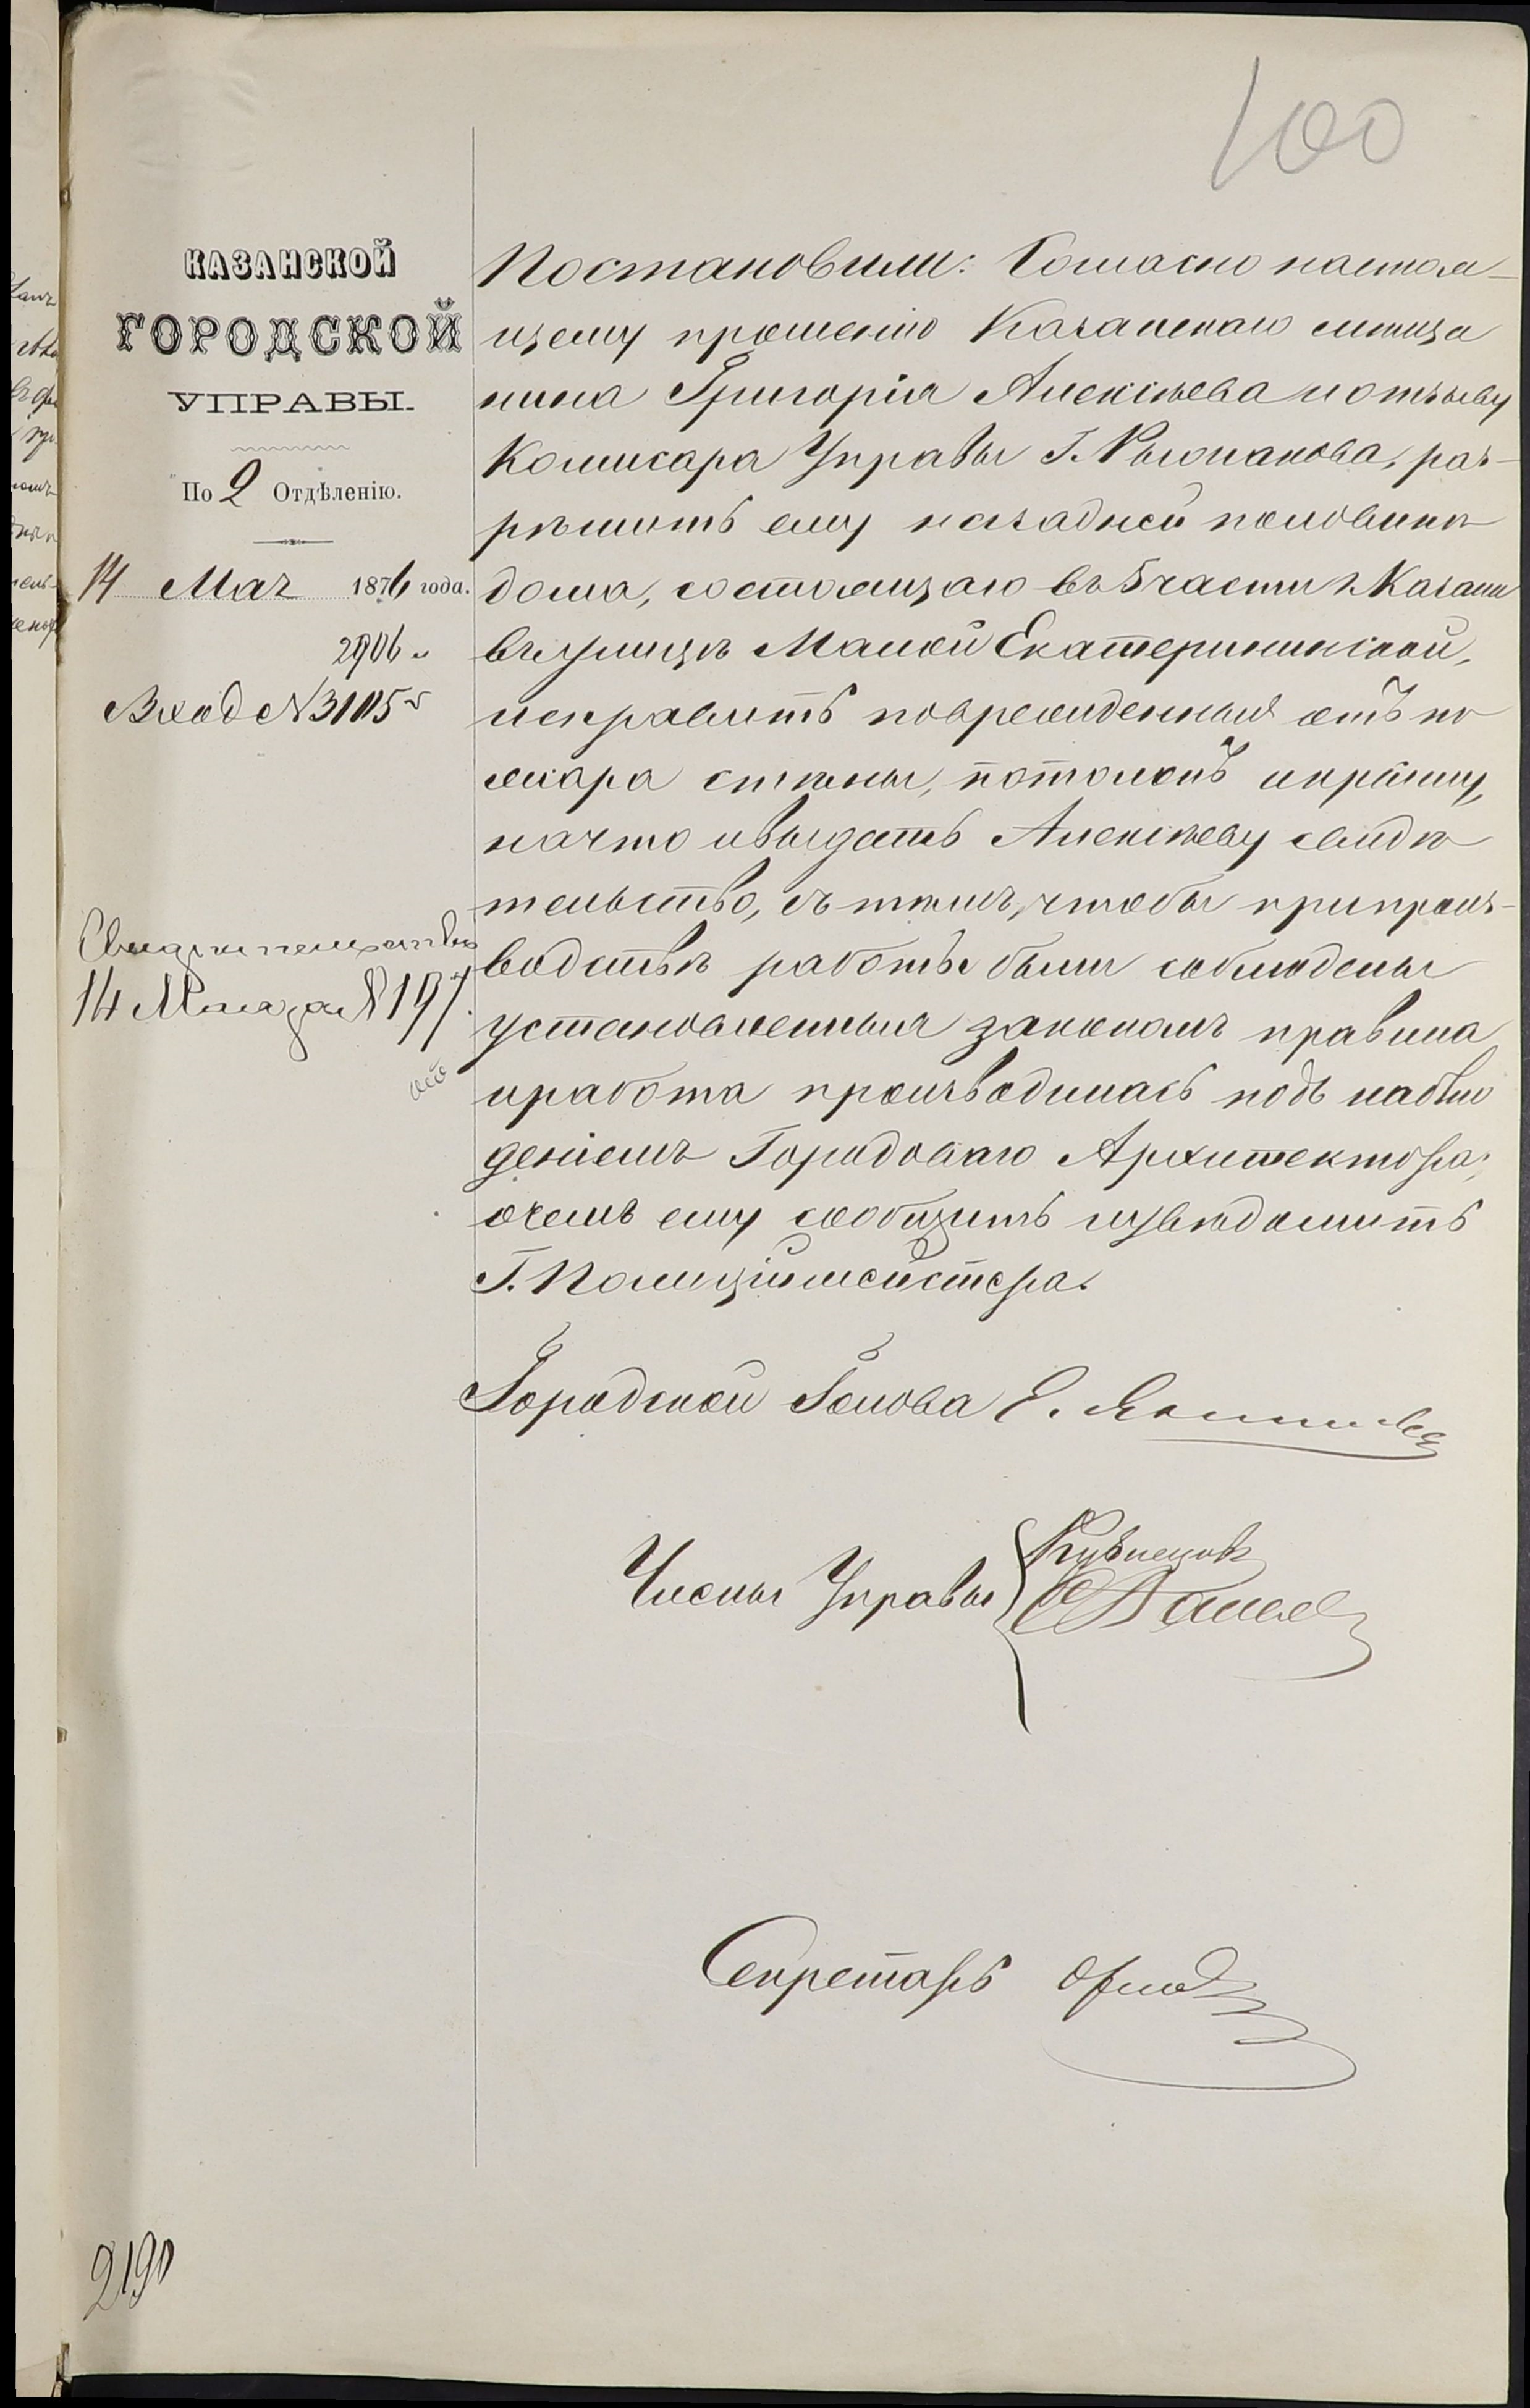 100
КАЗАНСКОЙ
ГОРОДСКОЙ
УПРАВЫ.
По 2 Отдѣленію.
14 Мая 1876 года.
2906
Вход №3105
Свидѣтельство
14 Мая за №197.
2190
Постановили: Согласно настоя-
щему прошенію Казанскаго мѣща
нина Григорія Алексѣева и отзыву
Комисара Управы Г. раз-
рѣшить ему на задней половинѣ
дома, состоящаго въ 5 части г. Казани
въ улицѣ Малой Екатерининской,
исправить поврежденныя отъ по
жара стѣны, потолокъ и крышу,
на что и выдать Алексѣеву свидѣ
тельство, съ тѣмъ, чтобы при произ-
водствѣ работъ были соблюдены
установленныя закономъ правила
и работа производилась подъ наблю
деніемъ Городоваго Архитектора;
о чемъ ему сообщить и увѣдомить
Г. Полиціймейстера.
Городской Голова Е.
Члены Управы Кузнецовъ
Секретарь